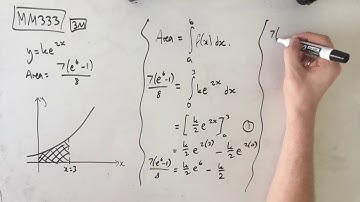 MM333
3M
y = ke^{2x}
Area = \frac{7(e^6-1)}{8}
y
x
x=3
Area = \int_a^b f(x) dx.
\frac{7(e^6-1)}{8} = \int_0^3 ke^{2x} dx
= [\frac{k}{2} e^{2x}]_0^3 ①
= \frac{k}{2} e^{2(3)} - \frac{k}{2} e^{2(0)}
\frac{7(e^6-1)}{8} = \frac{k}{2} e^6 - \frac{k}{2}
7(